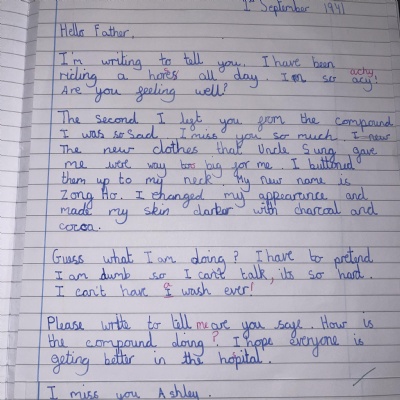 1st September 1941
Hello Father,
I'm writing to tell you. I have been
riding a hores all day. I am so achy acy!
Are you feeling well?
The second I left you from the compound
I was so sad. I miss you so much. I new
The new clothes that Uncle Sung gave
me were way too big for me. I buttoned
them up to my neck. My new name is
Zong Ho. I changed my appearance and
made my skin darker with charcoal and
cocoa.
Guess what I am doing? I have to pretend
I am dumb so I can't talk, its so hard.
I can't have a wash ever!
Please write to tell me are you saye. How is
the compound doing? I hope everyone is
geting better in the hopital.
I miss you Ashley.